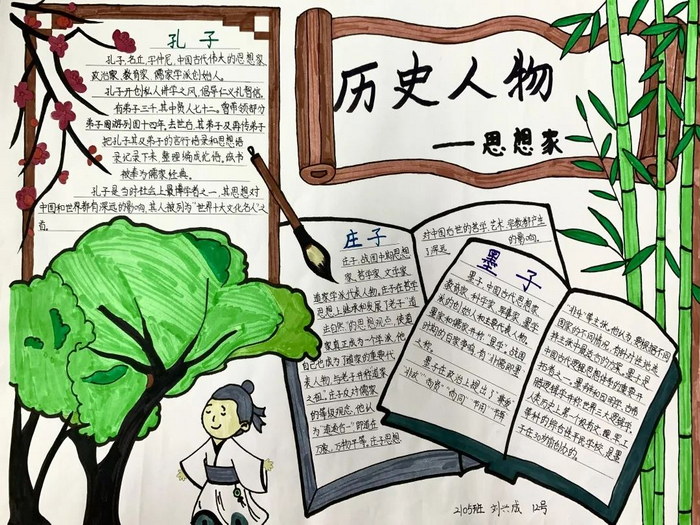 孔子
孔子,名丘,字仲尼,中国古代伟大的思想家,
政治家,教育家,儒家学派创始人。
孔子开创私人讲学之风,倡导仁义礼智信。
有弟子三千,其中贤人七十二。曾带领部分
弟子周游列国十四年,去世后,其弟子及再传弟子
把孔子及其弟子的言行语录和思想语
录记录下来,整理编成论语。
被奉为儒家经典。
孔子是当时社会上最博学者之一,其思想对
中国和世界都有深远的影响,其人被列为“世界十大文化名人”之
首。
历史人物
——思想家
庄子
庄子,战国中期思想
家,哲学家,文学家
道家学派代表人物。庄子在哲学
思想上继承和发展了老子“道
法自然”的思想观点,使道
家真正成为一个学派,他
自己也成为了道家的重要代
表人物,与老子并称道家
之祖”。庄子反对儒家
的等级观念,他认
为“道通为一”即道在
万家,万物平等。庄子思想
对中国后世的哲学,艺术,宗教都产生
了深远的影响。
墨子
墨子,中国古代思想家
教育家,科学家,军事家,墨学
的创始人和主要代表人物。
墨家和儒家并称“显学”,战国
时期的百家争鸣,有“非儒即墨”
之称。
墨子在政治上提出了“兼爱”
“非攻”“尚贤”“尚同”“节用”“节葬”
“非乐”等主张,他认为,要根据不同
国家的不同情况,
中国古代逻辑思想体系的重要开
拓者之一。墨辩和因明学,古希
腊逻辑学并称世界三大逻辑学。
人类历史上第一个
单科的综合性平民学校,是墨
子在30岁前创办的。
2105班 12号